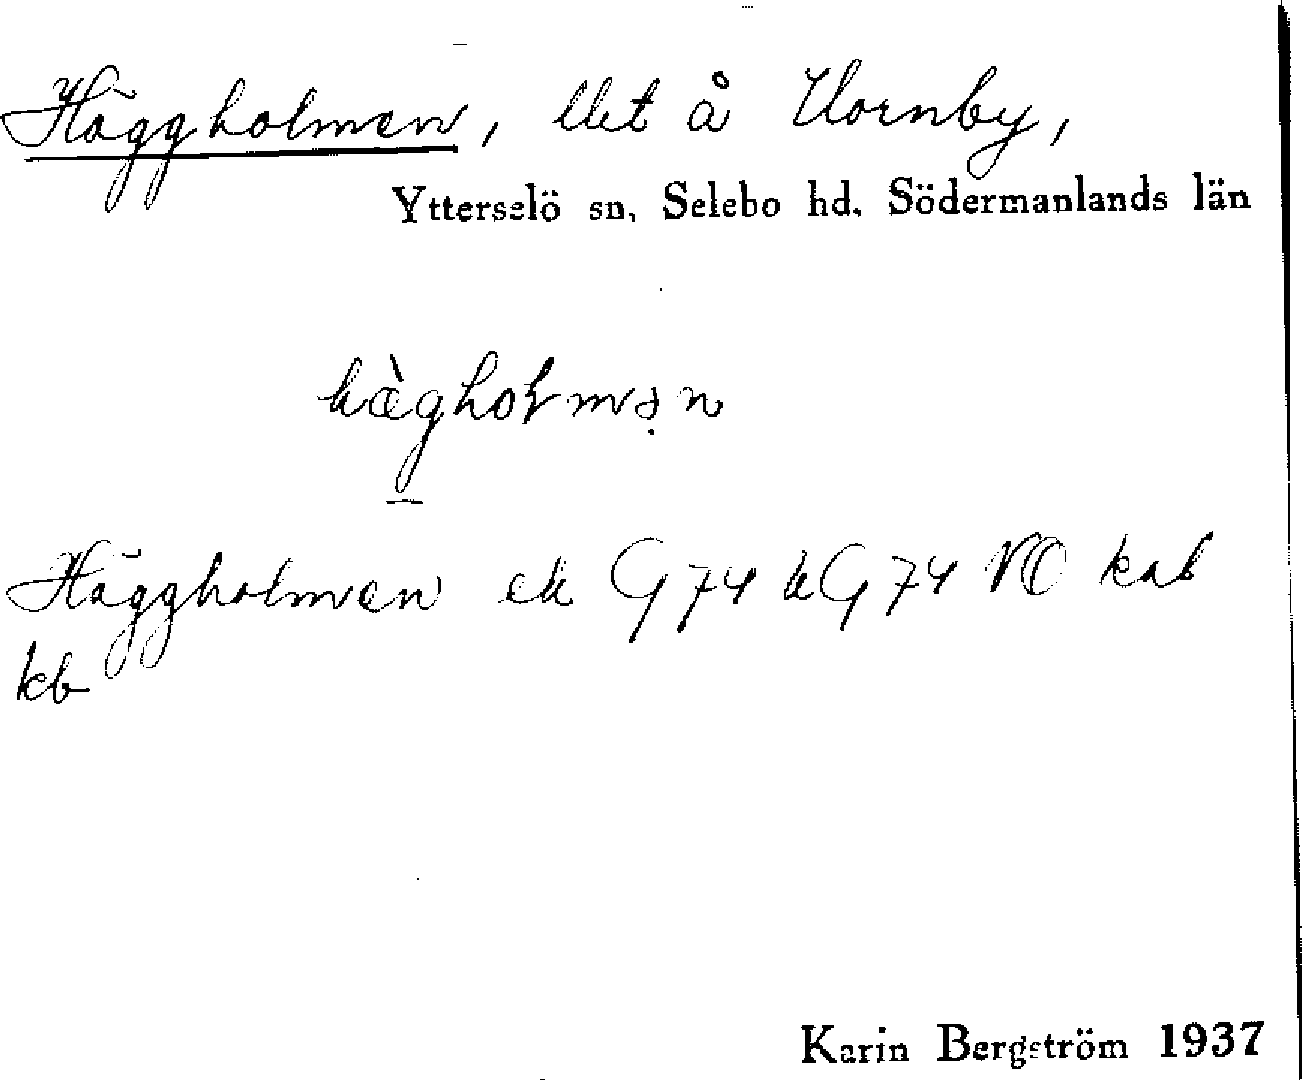 Häggholmen, llet å Hornby,
Ytterselö sn, Selebo hd. Södermanlands län
hὰgholmən
Häggholmen ek G74 hG74 NO
kb
Karin Bergström 1937